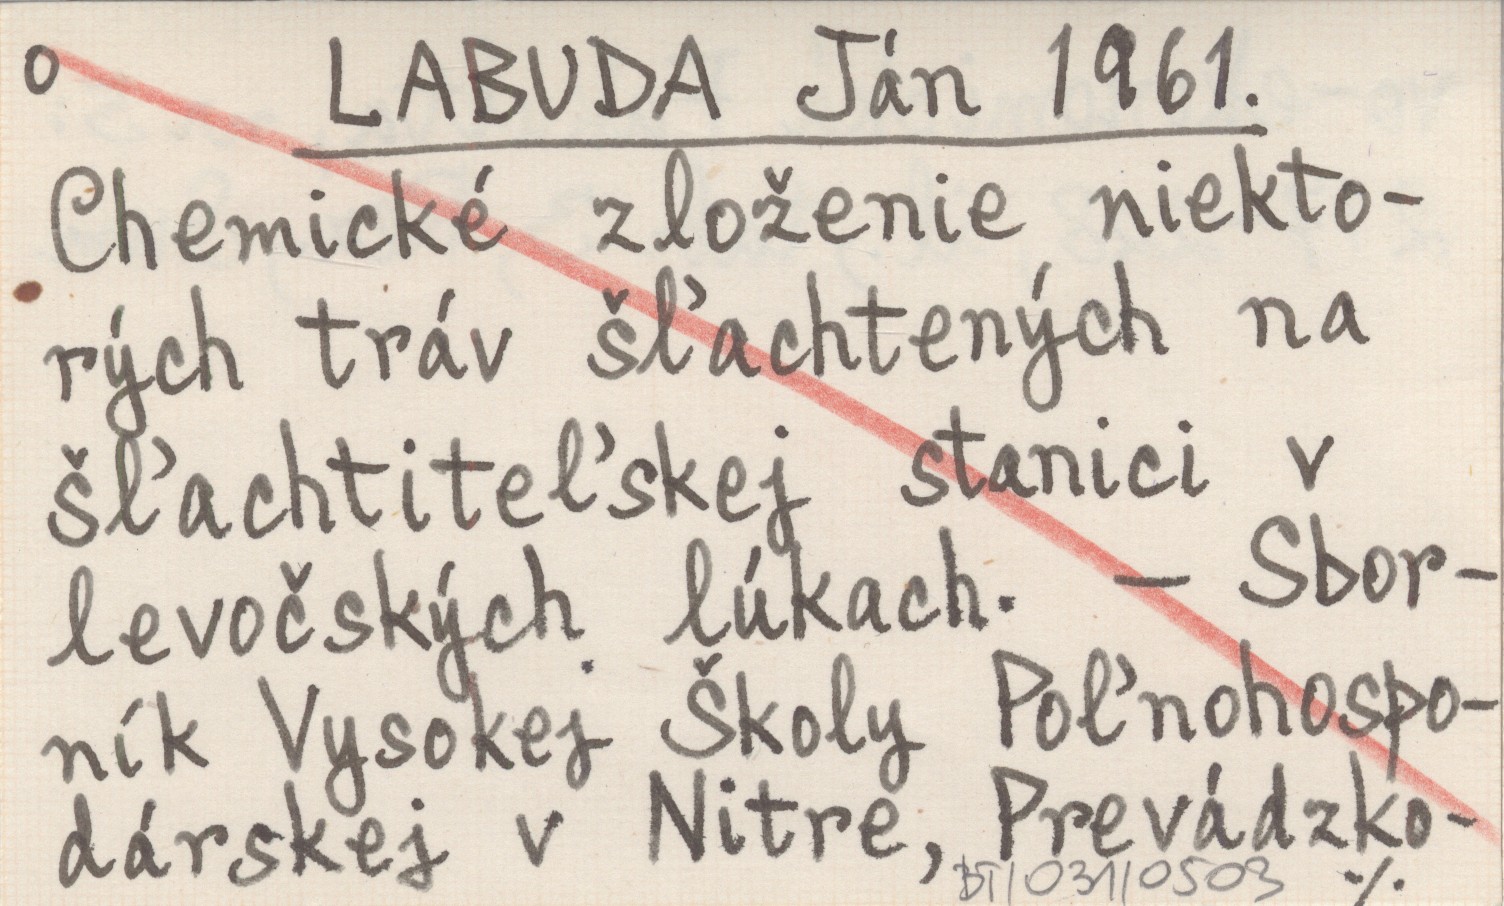 o LABUDA Ján 1961.
Chemické zloženie niekto-
rých tráv šľachtených na
šľachtiteľskej stanici v
levočských lúkach. — Sbor-
ník Vysokej Školy Poľnohospo-
dárskej v Nitre, Prevádzko-
BT/031/0503 ./.